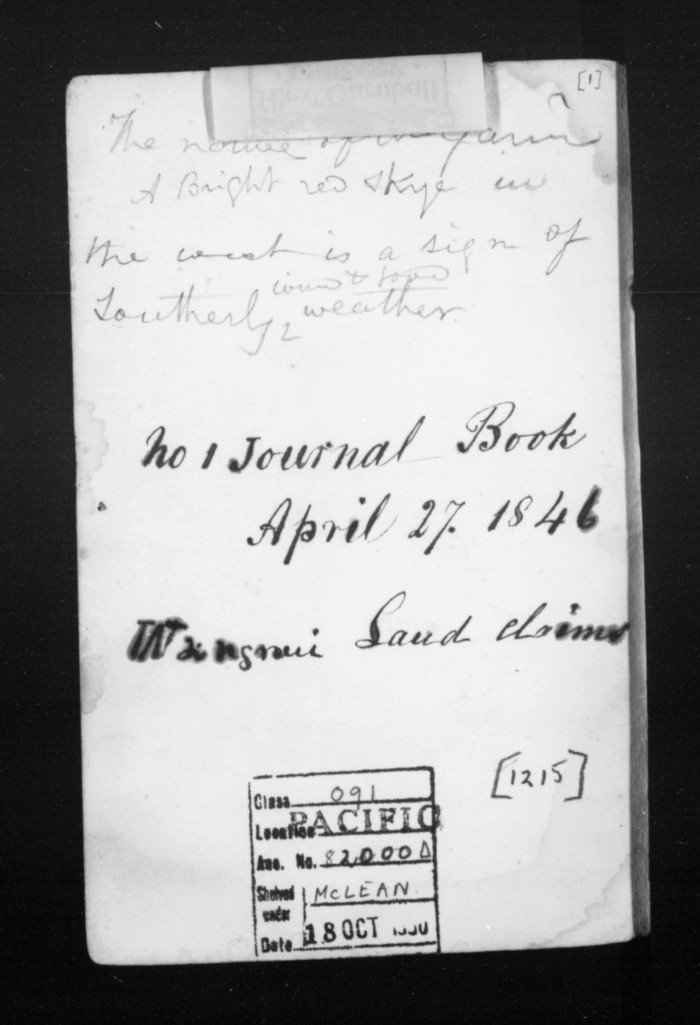 [1]
The of
A Bright red Skye in
the west is a sign of
wind &
Southerly weather
No 1 Journal Book
April 27. 1846
Wanganui Land claims
[1215]
Class 091
Location PACIFIC
Acc. No. 82,000
Shelved under McLEAN.
Date 18 OCT